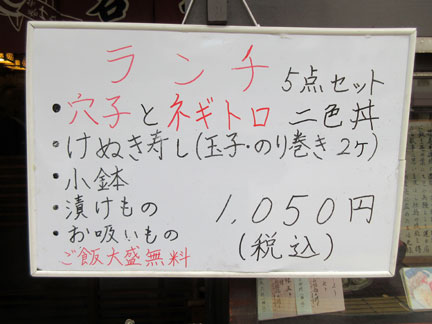 ランチ 5点セット
・穴子とネギトロ 二色丼
・けぬき寿し(玉子・のり巻き 2ヶ)
・小鉢
・漬けもの 1,050円
・お吸いもの (税込)
ご飯大盛無料